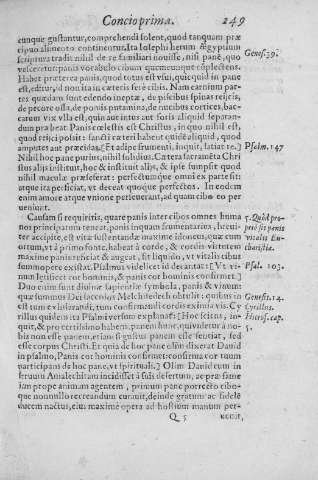 Concio prima. 249
cunque gustantur, comprehendi solent, quod tanquam præ
cipuo alimento continentur. Ita Iosephi herum Ægyptium
scriptura tradit nihil de re familiari nouisse, nisi pane, quo
vesceretur: panis vocabulo cibum quemcunque cõplectens.
Habet præterea panis, quod totus est vsui, quicquid in pane
est, editur, id non ita in cæteris seré cibis. Nam carnium par-
tes quædam sunt edendo ineptæ, de piscibus spinas reijcis,
de pecore ossa, de pomis putamina, de nucibus cortices, bac-
carum vix vlla est, quin aut intus aut foris aliquid
præbeat. Panis cælestis est Christus, in quo nihil est,
quod reijci possit: sancti cæteri habent quidé aliquid, quod
amputes aut præcidas. [Et adipe frumenti, inquit, satiat te.]
Nihil hoc pane purius, nihil solidius. Cætera sacramēta Chri
stus alijs instituit, hoc & instituit alijs, & ipse sumpsit quod
nihil maculæ præseferat: perfectumque omni ex parte sit:
atque ita perficiat, vt deceat quoque perfectos. In eodem
enim amore atque vnione perseuerant, ad quam cibo eo per
uenerunt.
Causam si requiritis, quare panis inter cibos omnes huma
nos principatum teneat, panis inquam frumentarius, breui-
ter accipite, est vitæ sustentandæ maxime idoneus, quæ cum
ortum, vt à primo fonte, habeat à corde, & cordis virtutem
maxime panis reficiat & augeat, fit liquido, vt vitalis cibus
summopere existat. Psalmus videlicet id decantat: [Vt vi-
num lętificet cor hominis, & panis cor hominis confirmet.]
Duo enim sunt diuinæ sapientiæ symbola, panis & vinum:
quæ summus Dei sacerdos Melchisedech obtulit: quibus in
est tum exhilarandi, tum confirmandi cordis eximia vis. Cy
rillus quidem ita Psalmi versum explanat: [Hoc scitus, in-
quit, & pro certissimo habens, panem hunc, qui videtur à no-
bis non esse panem, etiam si gustus panem esse sentiat, sed
esse corpus Christi. Et quia de hoc pane olim dixerat Dauid
in psalmo, Panis cor hominis confirmet: confirma cor tuum
participans de hoc pane, vt spirituali.] Olim Dauid cum in
seruum Amalechitam incidisset à suis desertum, ac præ fame
iam prope animam agentem, primum pane porrecto cibo-
que nonnullo recreandum curauit, deinde gratum ac fidelé
ducem nactus, eius maximè opera ad hostium manum per-
Q 5
Genes. 39.
Psalm. 147
5. Quid pro-
prie sit panis
vitalis Eu-
charistia.
Psal. 103.
Genes. 14.
Cyrillus.